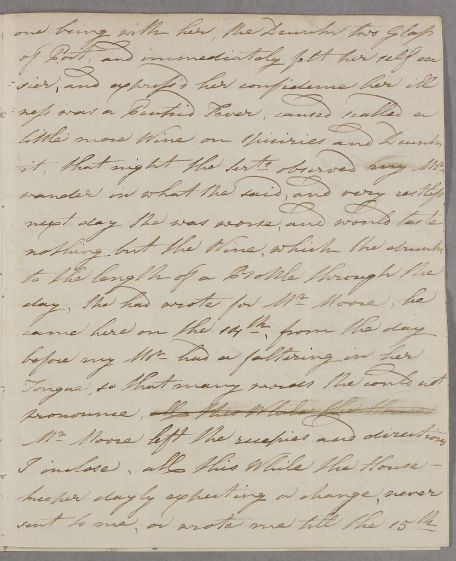 one being with her, she Drunk two Glass
of Port, and immediately felt her self ea
sier, and express'd her confidence her ill
ness was a Putrid Fever, caused scalled a
little more Wine on Spiceries and Drunk
it, that night the Sert. observed my Mrs.
wander in what she said, and very restless
next day she was worse, and would taste
nothing but the Wine, which she drunk
to the length of a Bottle through the
day, She had wrote for Mr. Moore, he
came here on the 14th, from the day
before my Mrs. had a faltering in her
Tongue, so that many words she could not
pronounce, all this While the House
Mr. Moore left the recepies and directions
I inclose, all this While the House-
keeper dayly expecting a change, never
sent to me, or wrote me till the 15th